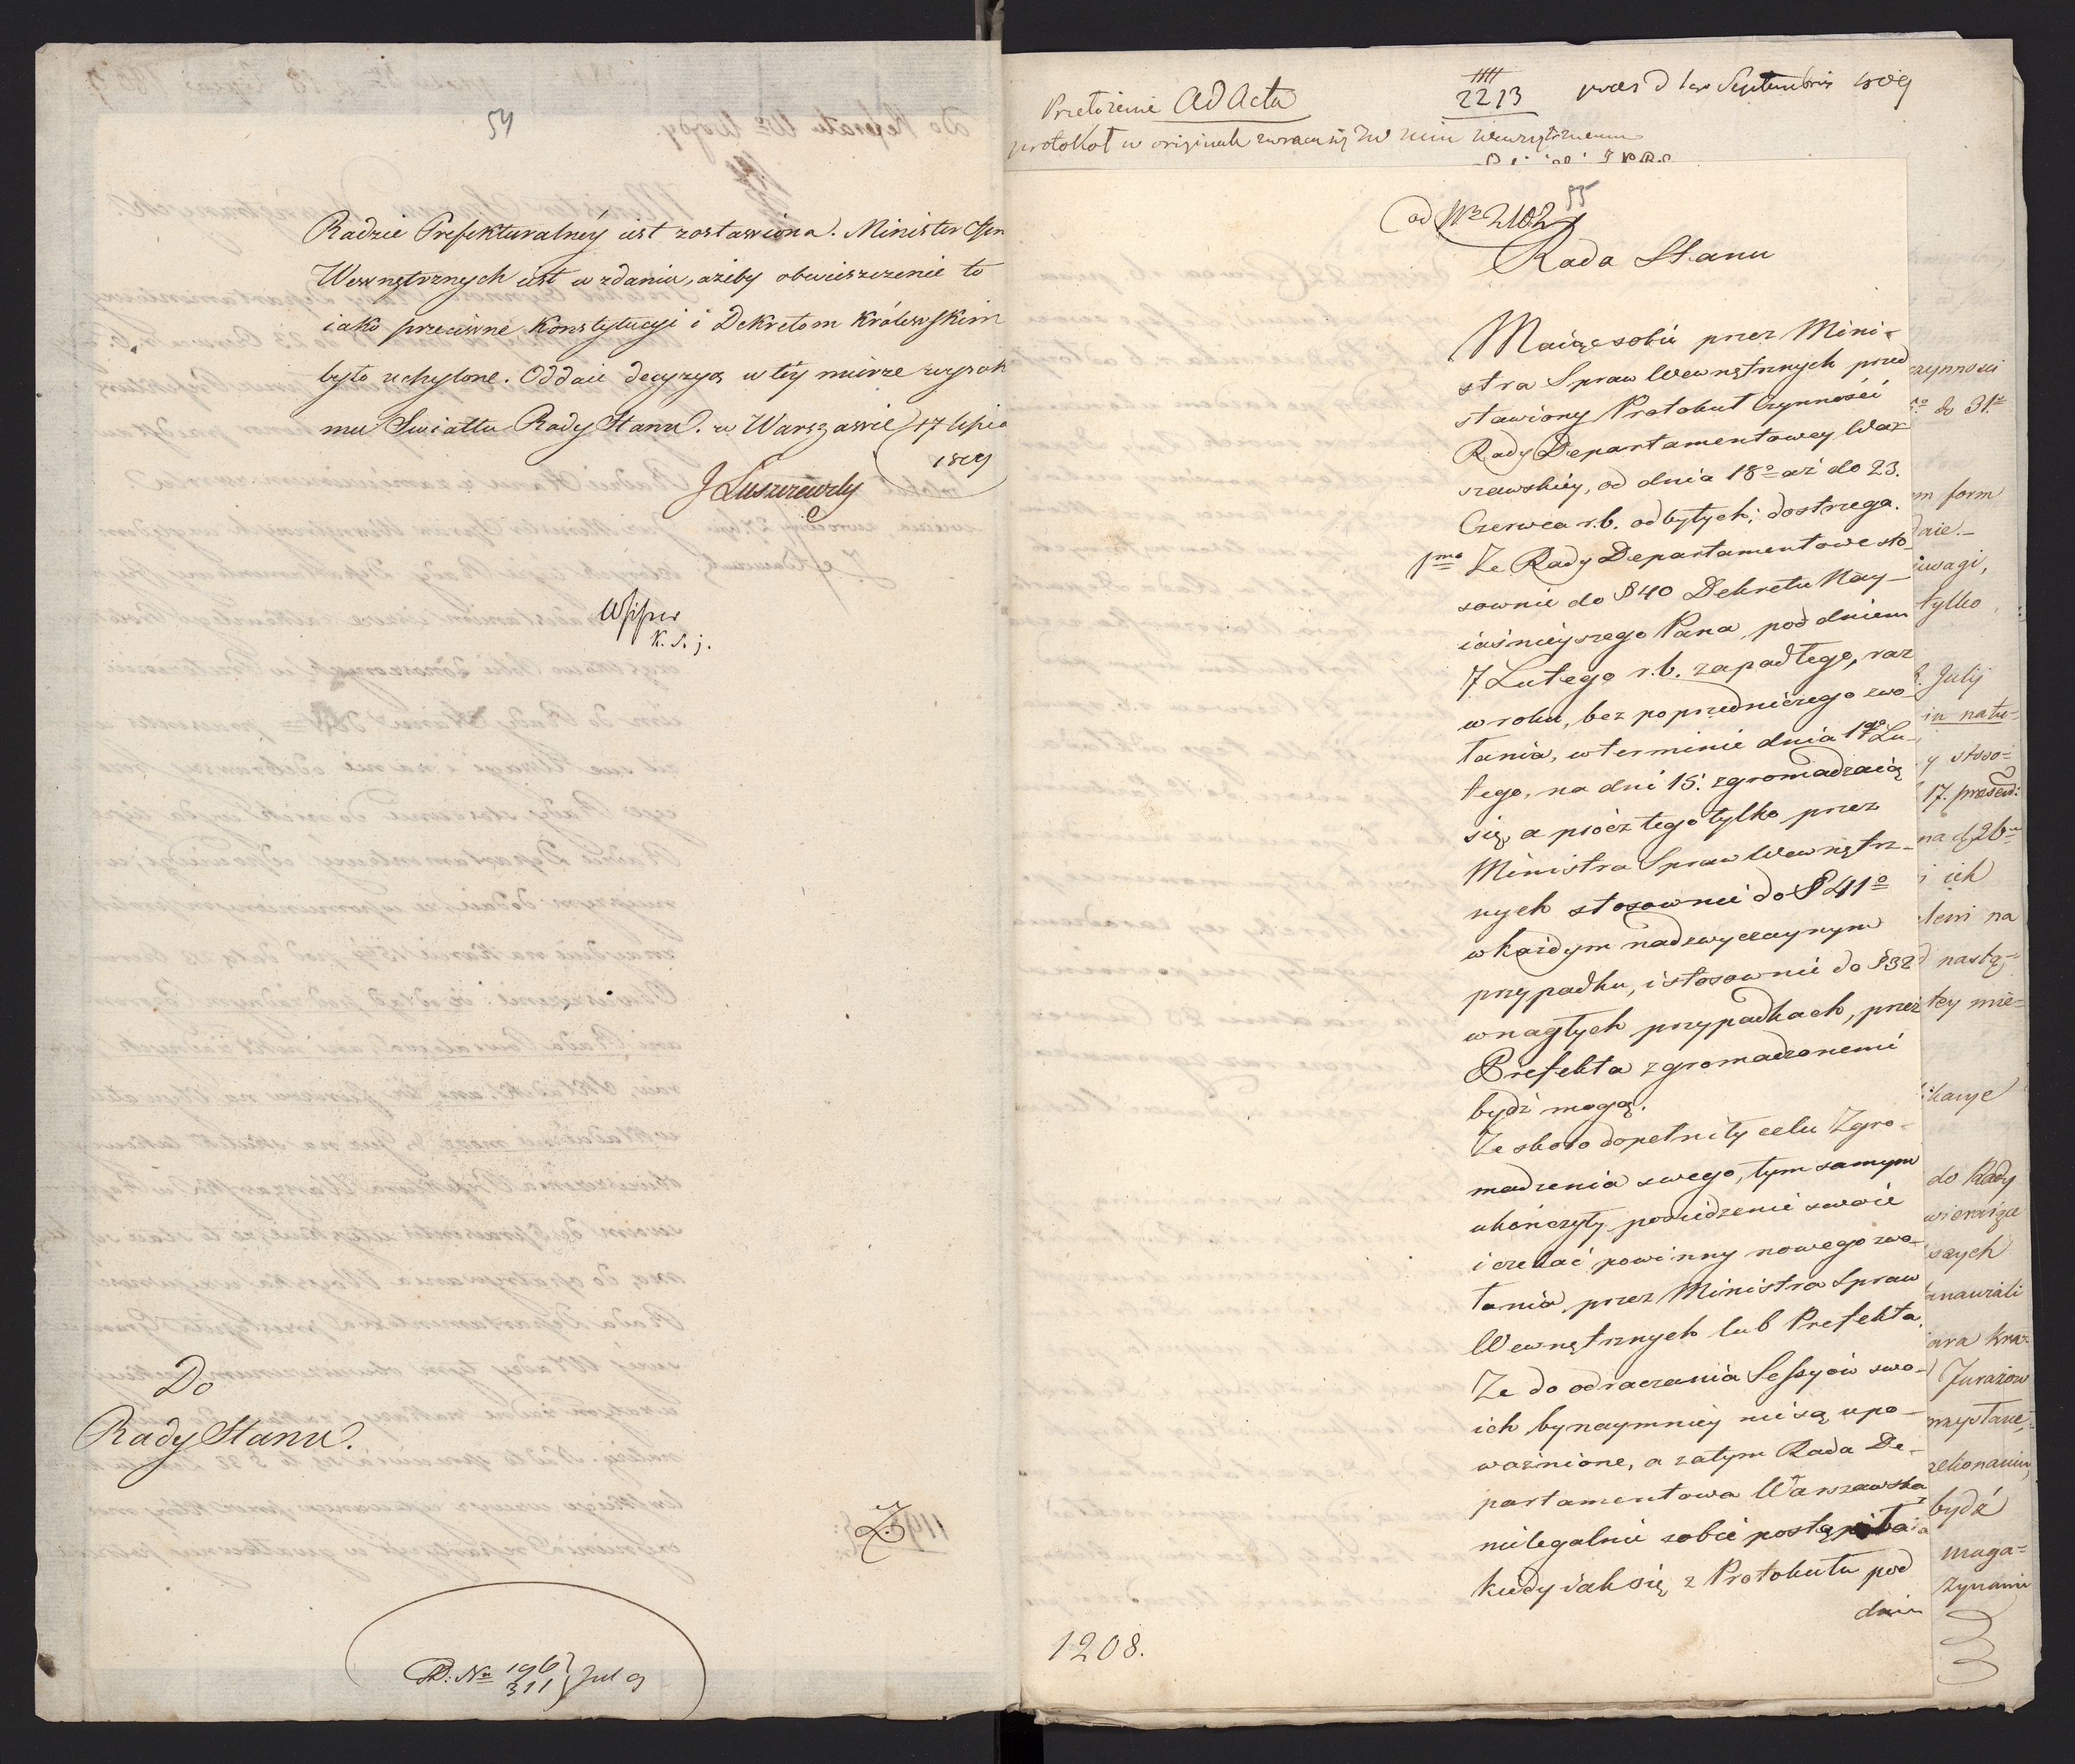 54
Radzie Prefekturalnéy iest zostawiona. Minister Spr
Wewnętrznych iest w zdaniu, ażeby obwieszczenie to
iako przeciwne Konstytucyi i Dekretom Królewskim
było uchylone. Oddaie decyzyą w tey mierze wysok
mu Swiatłu Rady Stanu. w Warszawie 17 lipca
1809
J Łuszczewsky
K. S. j.
Do
Rady Stanu.
D: No 196
311 } Jul 9
Przełożenie Ad Acta
2213
praes d 1 Septembris 809
protokoł w originale zwraca się Mu Wewnętrznemu
ad No 2102
55
Rada Stanu
Maiąc sobie przez Mini-
stra Spraw Wewnętrznych przed
stawiony Protokuł Czynności
Rady Departamentowey War
szawskiey, od dnia 18o aż do 23.
Czerwca r.b. odbytych; dostrzega.
1mo Ze Rady Departamentowe sto-
sownie do § 40 Dekretu Nay-
iaśnieyszego Pana pod dniem
7 Lutego r.b. zapadłego, raz
w roku, bez poprzedniczego zwo-
łania, w terminie dnia 1go Lu-
tego, na dni 15. zgromadzaią
się, a prócz tego tylko przez
Ministra Spraw Wewnętrz-
nych stosownie do § 41o
w każdym nadzwyczaynym
przypadku, i stosownie do § 38
w nagłych przypadkach, przez
Prefekta zgromadzonemi
bydź mogą.
Ze skoro dopełniły celu Zgro-
madzenia swego, tym samym
ukończyły posiedzenie swoie
i czekać powinny nowego zwo-
łania przez Ministra Spraw
Wewnętrznych lub Prefekta.
Ze do odraczania Sessyów swo-
ich bynaymniey nie są upo-
ważnione, a zatym Rada De-
partamentowa Warszawska
nielegalnie sobie postąpiła
kiedy iak się z Protokułu pod
dniem
1208.
czynności
do 31.
form
daie.-
uwagi,
tylko
July
in natu-
y stoso=
17. praesent:
na d 26
i ich
na
nastą-
tey mie-
do Rady
kra-
Furażów
bydź
maga=
zynami